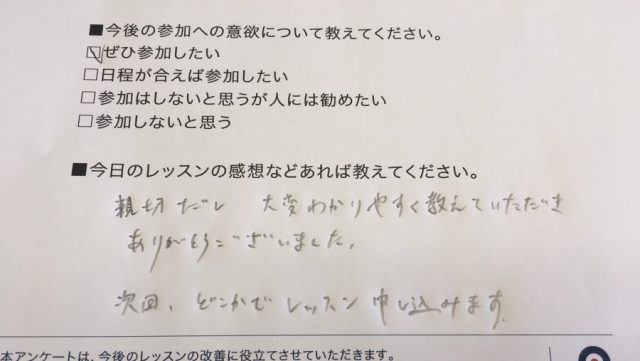 ■今後の参加への意欲について教えてください。
☑ぜひ参加したい
□日程が合えば参加したい
□参加はしないと思うが人には勧めたい
□参加しないと思う
■今日のレッスンの感想などあれば教えてください。
親切だし 大変わかりやすく教えていただき
ありがとうございました。
次回、どこかでレッスン申し込みます
本アンケートは、今後のレッスンの改善に役立てさせていただきます。